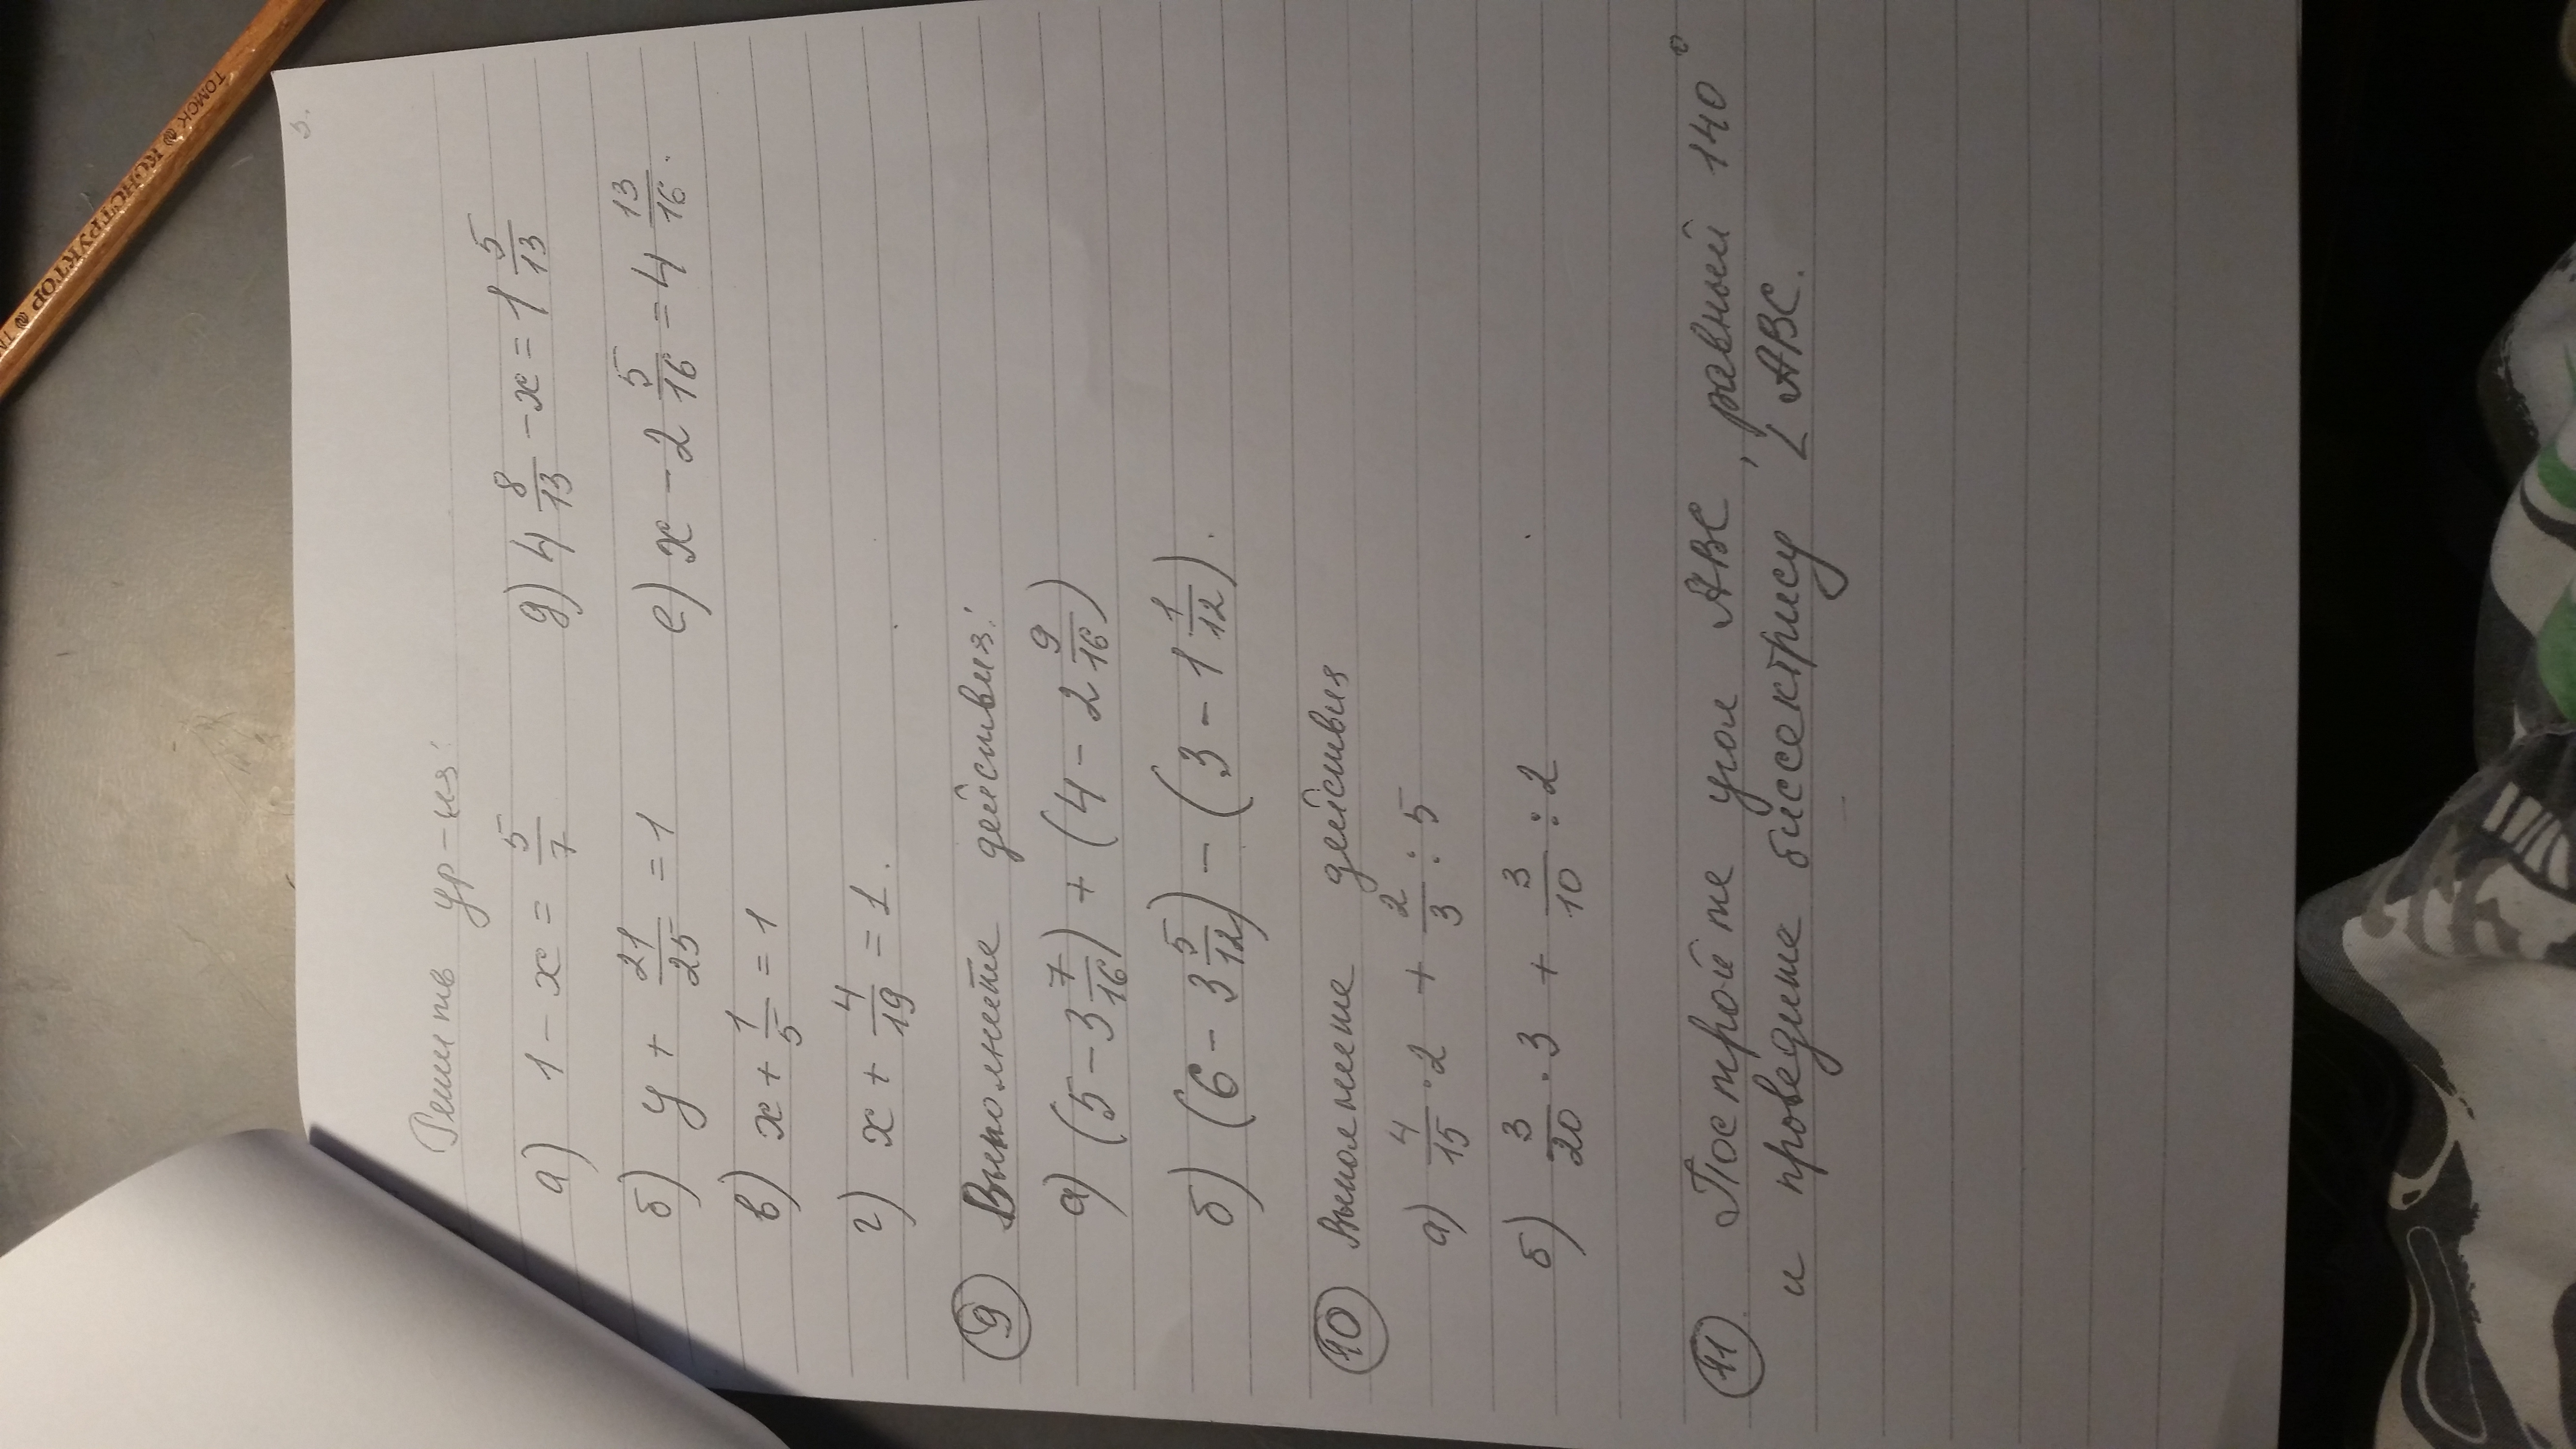 5.
Решить ур-ия:
а) 1 - x = 5/7 д) 4 8/13 - x = 1 5/13
б) y + 21/25 = 1 е) x - 2 5/16 = 4 13/16.
в) x + 1/5 = 1
г) x + 4/19 = 1.
9 Выполнете действия:
а) (5 - 3 7/16) + (4 - 2 9/16)
б) (6 - 3 5/12) - (3 - 1 1/12).
10 Выполнение действия
а) 4/15 · 2 + 2/3 : 5
б) 3/20 · 3 + 3/10 : 2
11 Постройте угол ABC, равный 140°
и проведите биссектрису ∠ ABC.
ТОМСК КОНСТРУКТОР ТМ